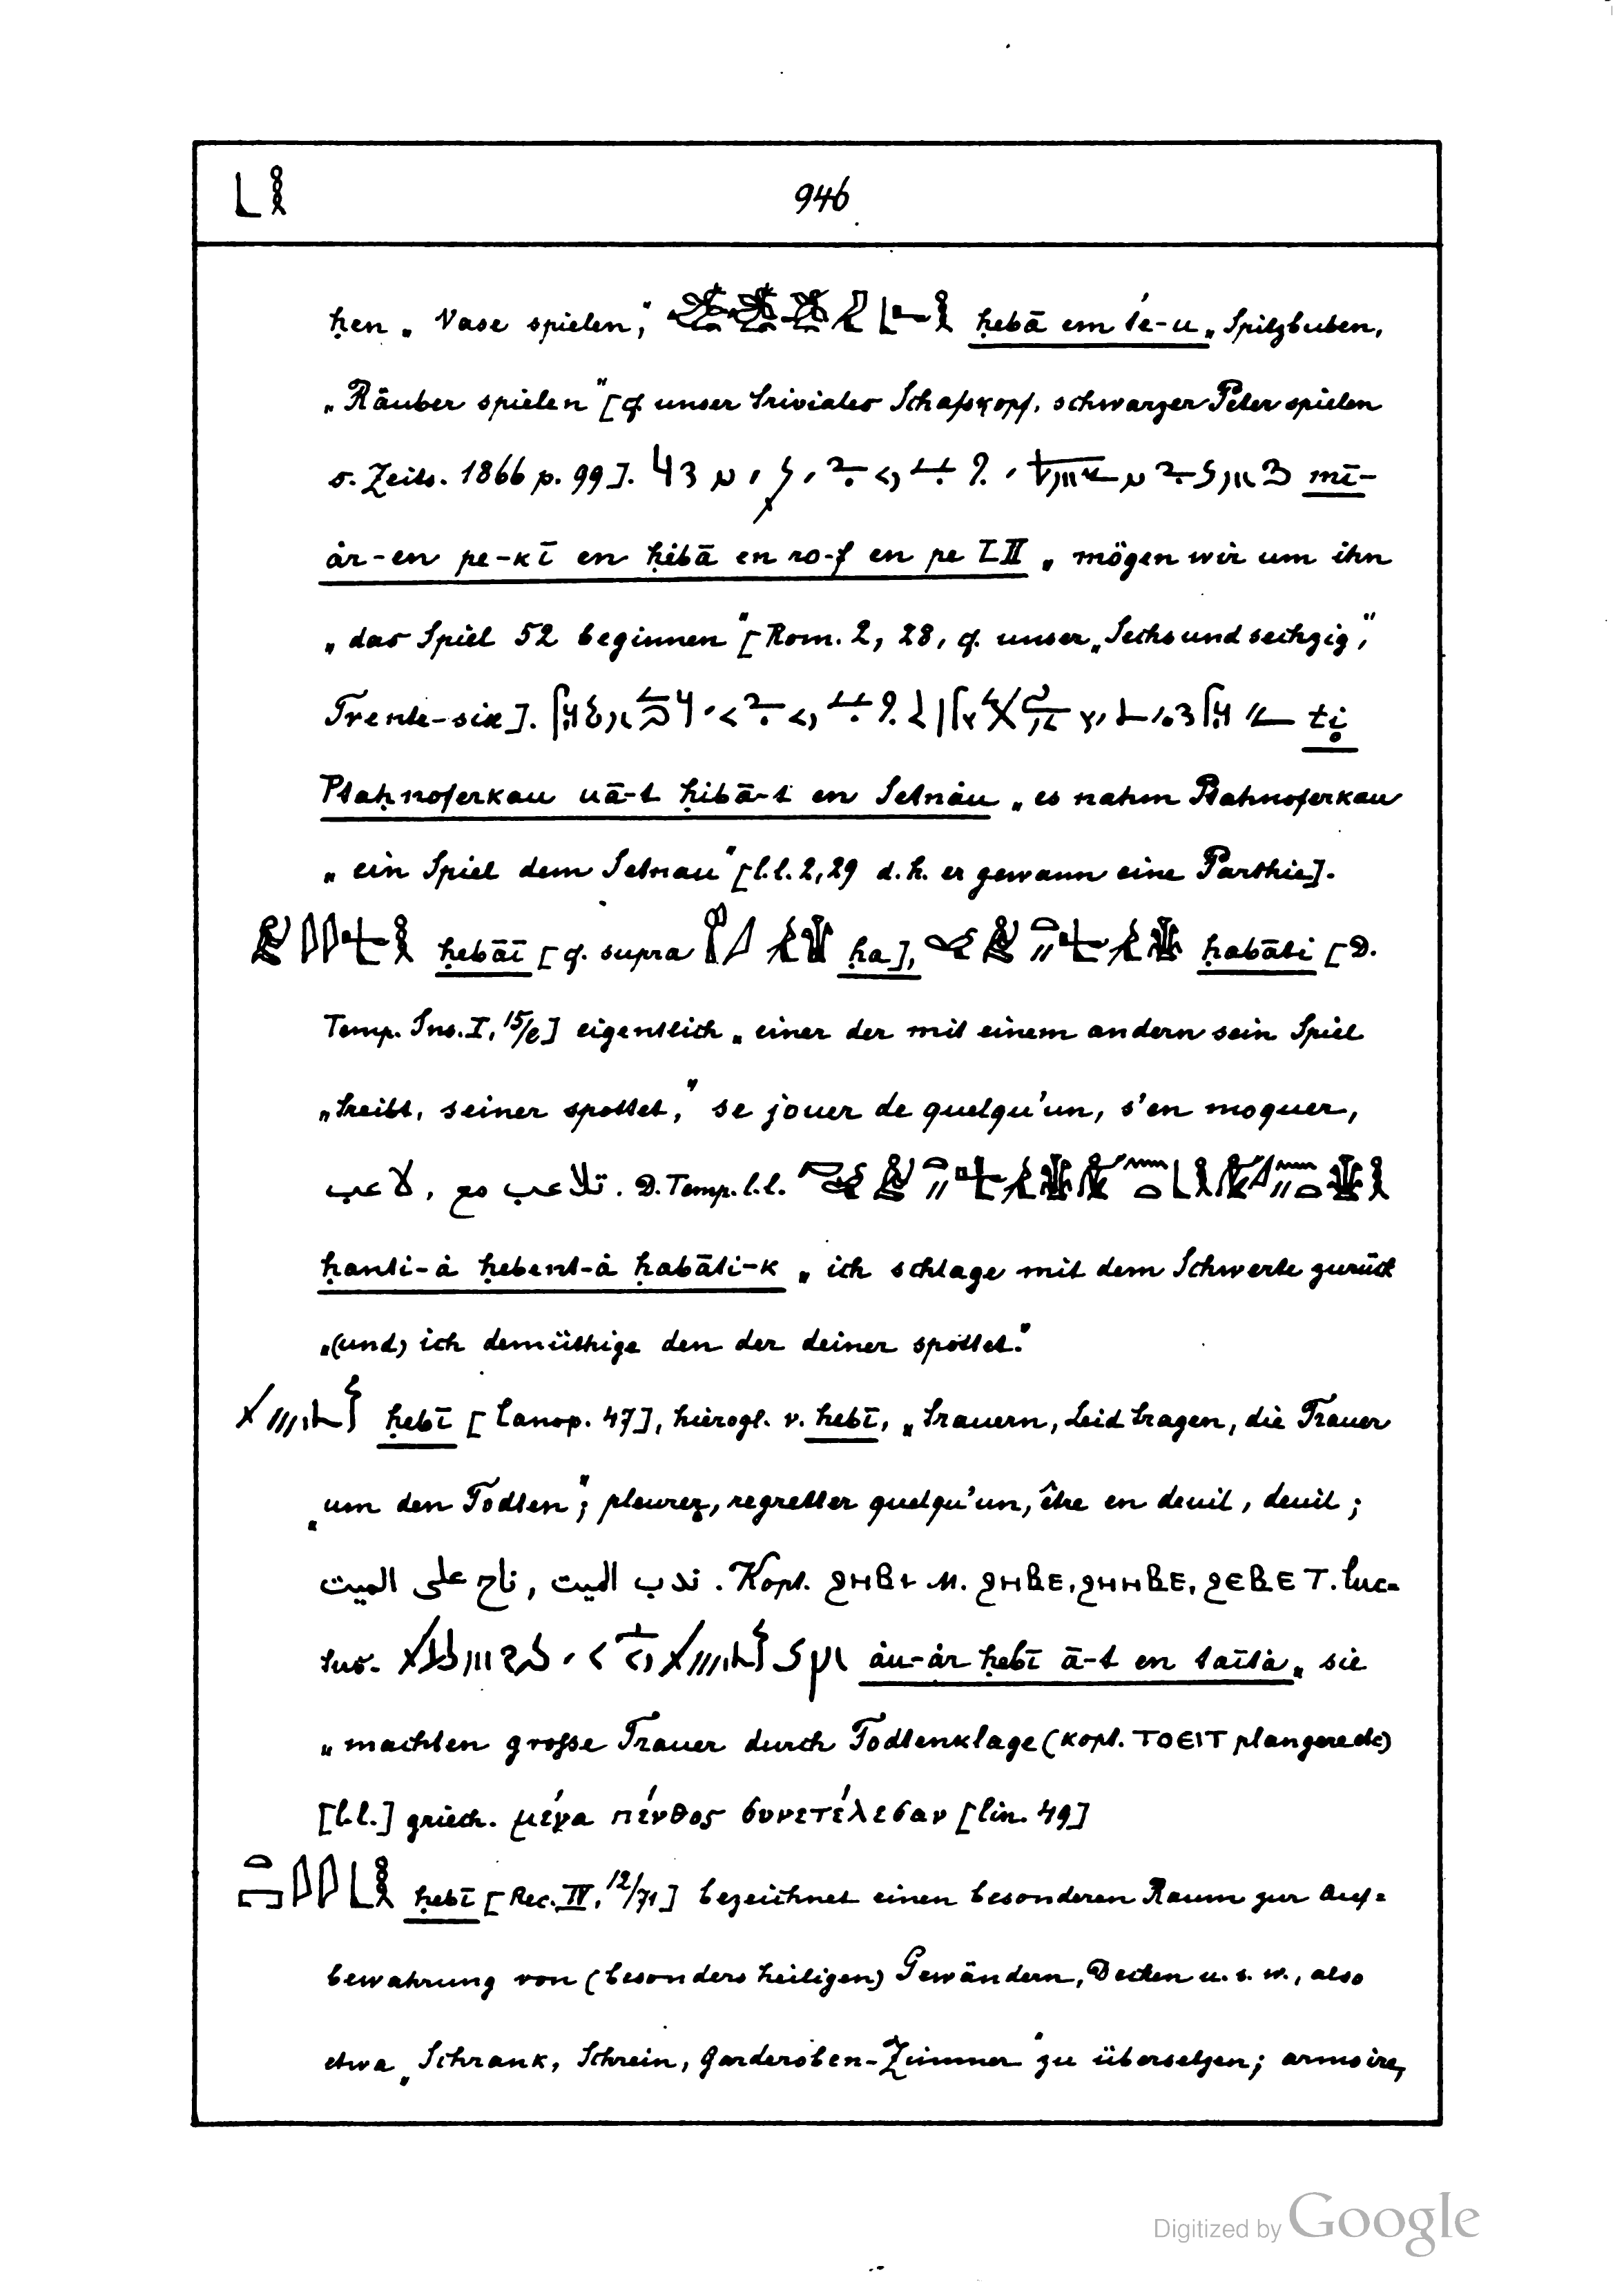 946
ḥen „Vase spielen," ḥebā em té-u „Spitzbuben,
„Räuber spielen" [cf. unser triviales Schafskopf, schwarzer Peter spielen
s. Zeits. 1866 p. 99]. mī-
ȧr-en pe-kī en ḥibā en ro-f en pe LII „mögen wir um ihn
„das Spiel 52 beginnen" [Rom. 2, 28, cf. unser „Sechsundsechzig,"
Trente-six]. ti
Ptaḥnoferkau uā-t ḥibā-t en Setnȧu „es nahm Ptahnoferkau
„ein Spiel dem Setnau" [l.l. 2, 29 d.h. er gewann eine Parthie].
ḥebāī [cf. supra ḥa], ḥabāti [D.
Temp. Ins. I, 15/e] eigentlich „einer der mit einem andern sein Spiel
„treibt, seiner spottet," se jouer de quelqu'un, s'en moquer,
لاعب, تلاعب مع. D. Temp. l.l.
ḥanti-ȧ ḥebent-ȧ ḥabāti-k „ich schlage mit dem Schwerte zurück
„(und) ich demüthige den der deiner spottet."
ḥebī [Canop. 47], hierogl. v. ḥebī, „trauern, Leid tragen, die Trauer
„um den Todten"; pleurer, regretter quelqu'un, être en deuil, deuil;
ندب الميت, ناح على الميت. Kopt. ϩⲏⲃⲓ M. ϩⲏⲃⲉ, ϩⲏⲏⲃⲉ, ϩⲉⲃⲉ T. luc-
tus. ȧu-ȧr ḥebī ā-t en taītȧ „sie
„machten große Trauer durch Todtenklage (kopt. ⲧⲟⲉⲓⲧ plangere etc)
[l.l.] griech. μέγα πένθος συνετέλεσαν [lin. 49]
ḥebī [Rec. IV, 12/71] bezeichnet einen besonderen Raum zur Auf-
bewahrung von (besonders heiligen) Gewändern, Decken u. s. w., also
etwa „Schrank, Schrein, Garderoben-Zimmer" zu übersetzen; armoire,
Digitized by Google